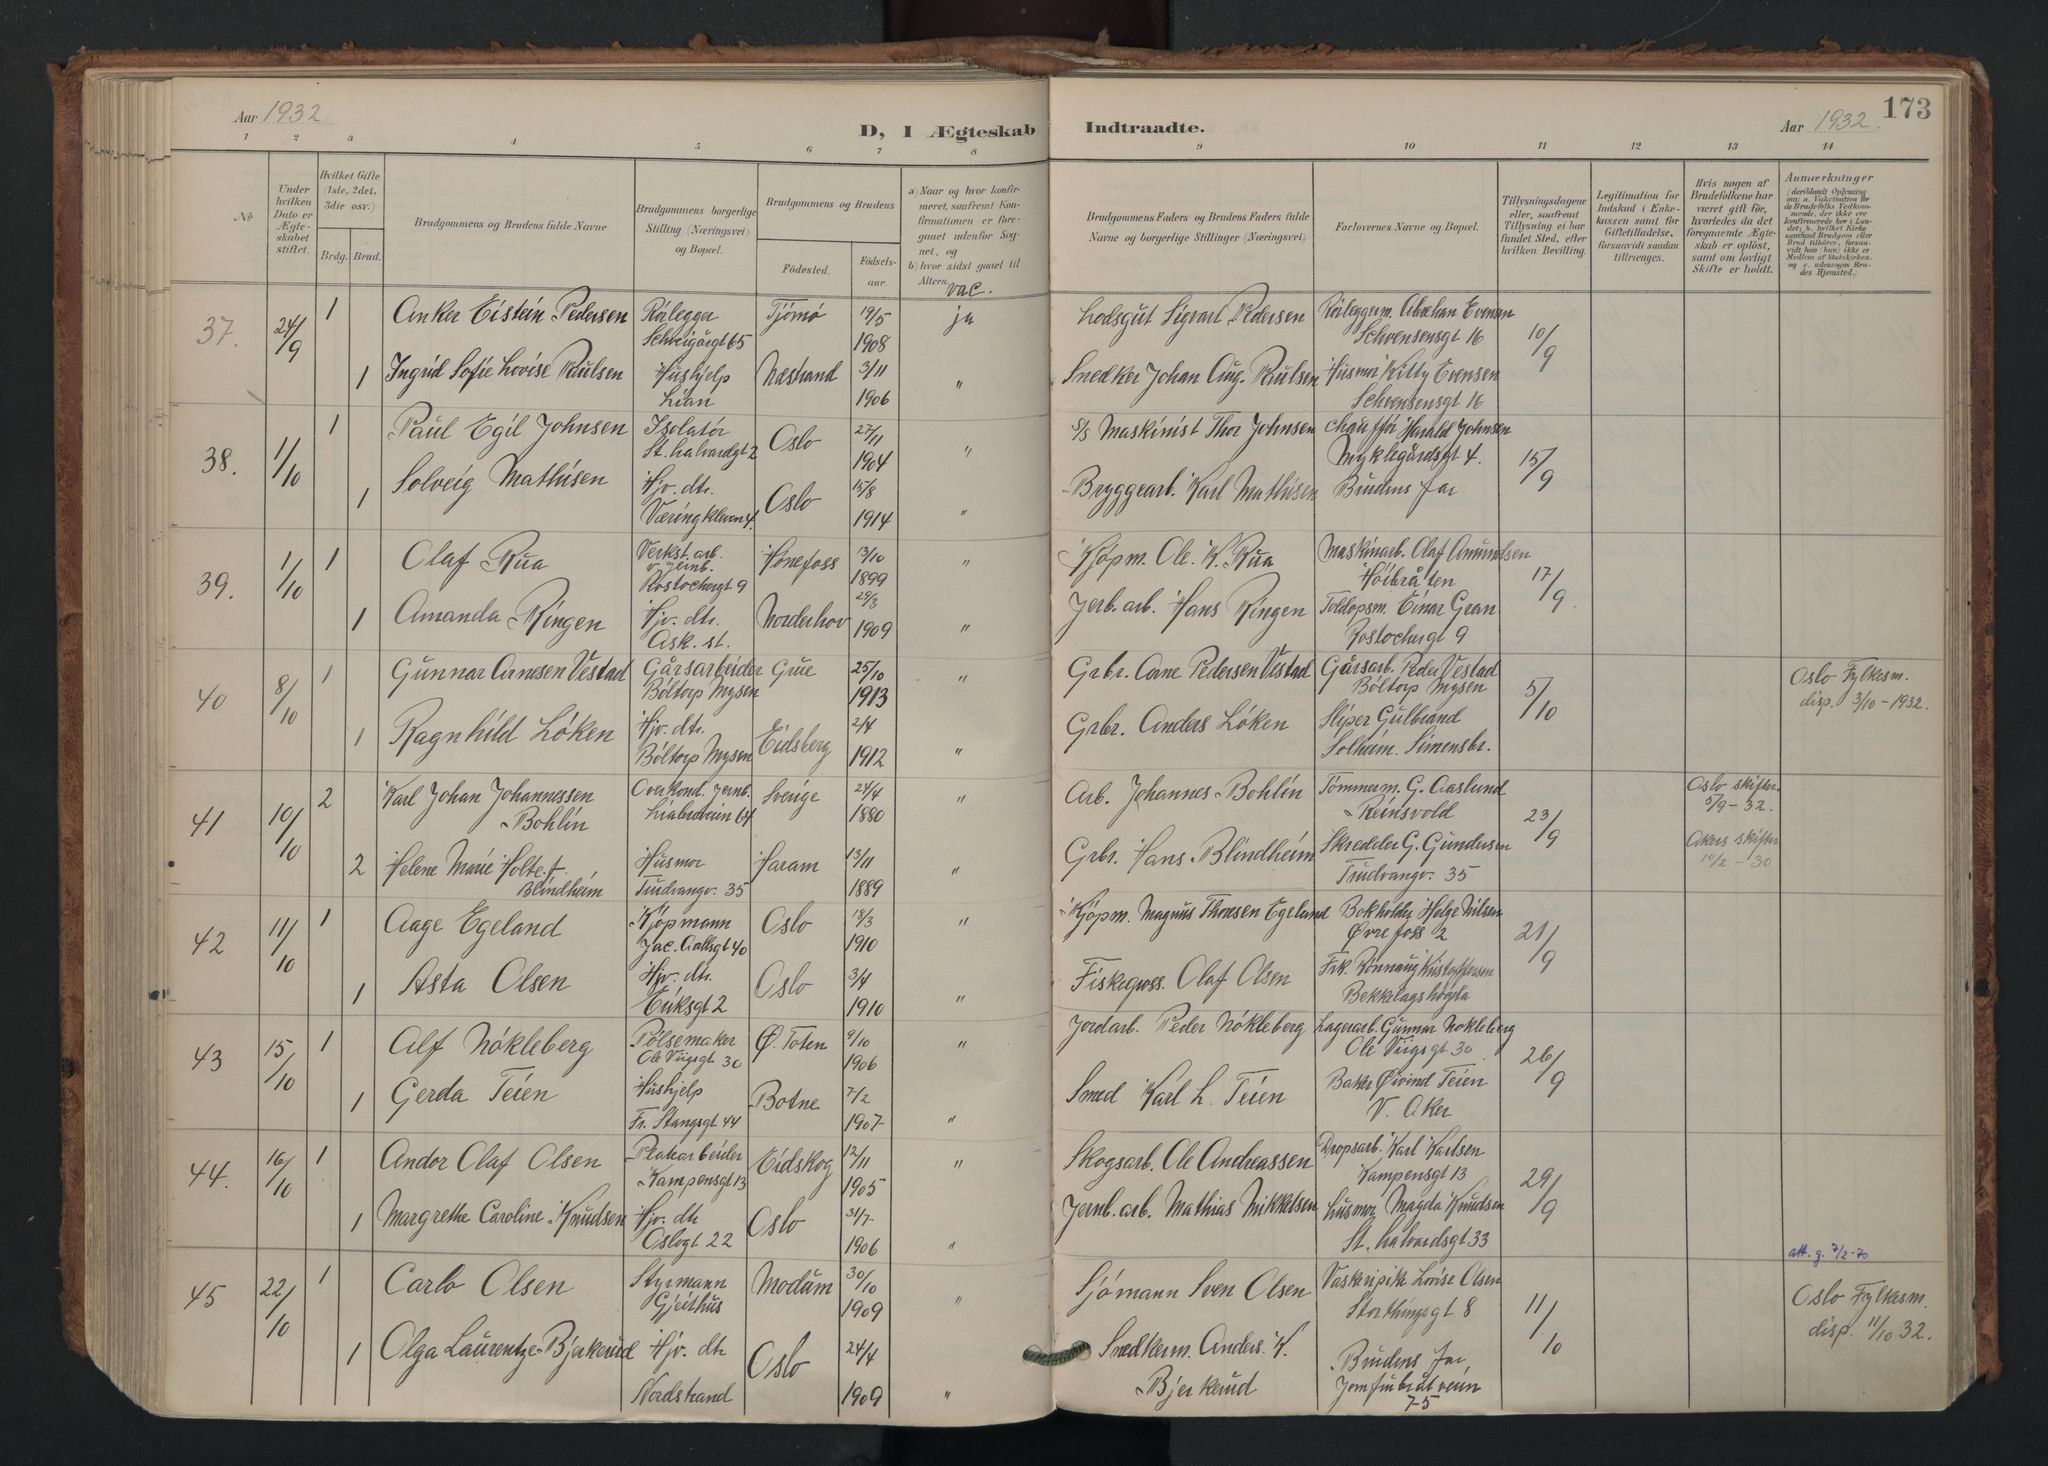 Aar 1932
D, I Ægteskab Indtraadte.
Aar 1932. 173
1 2 3 4 5 6 7 8 9 10 11 12 13 14
No
Under hvilken Dato er Ægteskabet stiftet.
Hvilket Gifte (1ste, 2det, 3die osv.)
Brdg. Brud.
Brudgommens og Brudens fulde Navne
Brudgommens borgerlige Stilling (Næringsvei) og Bopæl.
Brudgommens og Brudens
Födested.
Födselsaar.
a) Naar og hvor konfirmeret, saafremt Konfirmationen er foregaaet udenfor Sognet, og
b) hvor sidst gaaet til Alters. vac.
Brudgommens Faders og Brudens Faders fulde Navne og borgerlige Stillinger (Næringsvei)
Forlovernes Navne og Bopæl.
Tillysningsdagene eller, saafremt Tillysning ei har fundet Sted, efter hvilken Bevilling.
Legitimation for Indskud i Enkekassen samt for Giftetilladelse, forsaavidt saadan tiltrænges.
Hvis nogen af Brudefolkene har været gift før, hvorledes da det foregaaende Ægteskab er oplöst, samt om lovligt Skifte er holdt.
Anmærkninger
37. 24/9 1 Anker Eistein Pedersen Rørlegger Tjömö 19/5 ja Lodsgut Sigvart Pedersen Rörleggerm. Abrahan Evensen 10/9
Schweigårdgt 65 1908 Schwensensgt 16
1 Ingrid Sofie Lovise Paulsen Hushjelp Næstrand 3/11 " Snedker Johan Aug. Paulsen Husmor Kitty Evensen
Lian 1906 Schwensensgt 16
38. 1/10 1 Paul Egil Johnsen Isolatør Oslo 27/11 " S/S Maskinist Thor Johnsen Chauffør Harald Johnsen 15/9
St. halvardgt 2 1904 Myklegårdsgt 4.
1 Solveig Mathisen Hjv. dtr. Oslo 15/8 " Bryggearb. Karl Mathisen Brudens far
Væringkleven 4. 1914
39. 1/10 1 Olaf Rua Verkst. arb. Hønefoss 13/10 " Kjøpm. Ole. K. Rua Maskinarb. Olaf Amundsen 17/9
v. jernb. Höibråten
Rostochergt 9 1899
1 Amanda Ringen Hjv. dtr. Norderhov 29/3 " Jerb. arb. Hans Ringen Toldopsm. Einar Gran
Ask. st. 1909 Rostochergt 9
40 8/10 1 Gunnar Arnesen Vestad Gårsarbeider Grue 25/10 " Grbr. Arne Pedersen Vestad Gårsarb. Peder Vestad 5/10 Oslo Fylkesm.
Böltorp Mysen 1913 Böltorp Mysen disp. 3/10 - 1932.
1 Ragnhild Løken Hjv. dtr. Eidsberg 2/4 " Grbr. Anders Løken Sliper Gulbrand
Böltorp Mysen 1912 Solheim. Simensbr.
41 10/10 2 Karl Johan Johannessen Overkond. Jernb. Sverige 24/4 " Arb. Johannes Bohlin Tømmerm. G. Aaslund 23/9 Oslo skifter.
Bohlin Liabroveien 64 1880 Reinsvold 5/9 - 32.
2 Helene Marie Holte f. Husmor Haram 13/11 " Grbr. Hans Blindheim Skredder G. Gundersen Akers skifter
Blindheim Trudvangv. 35 1889 Trudvangv. 35 10/2 - 30
42 11/10 1 Aage Egeland Kjøpmann Oslo 18/3 " Kjøpm. Magnus Thorsen Egeland Bokholder Helge Nilsen 21/9
Jac. Aallsgt 40 1910 Øvre foss 2
1 Asta Olsen Hjv. dtr. Oslo 3/4 " Fiskegross. Olaf Olsen Frk. Rönnaug Kristoffersen
Eriksgt 2 1910 Bekkelagshøgda
43 15/10 1 Alf Nøkleberg Pølsemaker Ø. Toten 9/10 " Jordarb. Peder Nøkleberg Lagerarb. Gunnar Nøkleberg 26/9
Ole Viigsgt 30 1906 Ole Viigsgt 30
1 Gerda Teien Hushjelp Botne 7/2 " Smed Karl L. Teien Baker Øivind Teien
Fr. Stangsgt 44 1907 V. Aker
44. 16/10 1 Andor Olaf Olsen Platearbeider Eidskog 12/11 " Skogsarb. Ole Andreassen Dropsarb. Karl Karlsen 29/9
Kampensgt 13 1905 Kampensgt 13
1 Margrethe Caroline Knudsen Hjv. dtr Oslo 31/7 " Jernb. arb. Mathias Mikkelsen husmor Magda Knudsen
Oslogt 22 1906 St. halvardsgt 33
att. g. 7/2-70
45 22/10 1 Carlo Olsen Styrmann Modum 30/10 " Sjømann Sven Olsen Vaskeripike Lovise Olsen 11/10 Oslo Fylkesm.
Gjeithus 1909 Storthingsgt 8 disp. 11/10 32.
1 Olga Laurentze Bjerkerud Hjv. dtr Oslo 24/4 " Snedkerm. Anders. K. Brudens far,
Nordstrand 1909 Bjerkerud Jomfrubråtveien
75